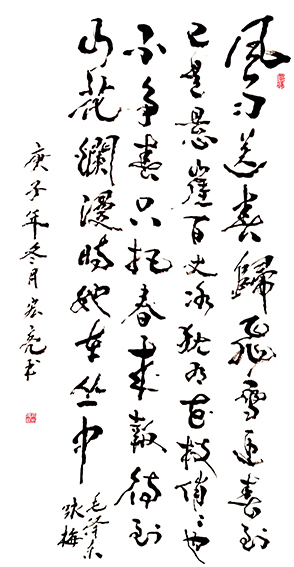 風雨送春歸飛雪迎春到
已是懸崖百丈冰猶有花枝俏〻也
不争春只把春来報待到
山花爛漫時她在丛中
毛泽东
咏梅
庚子年冬月宏亮书